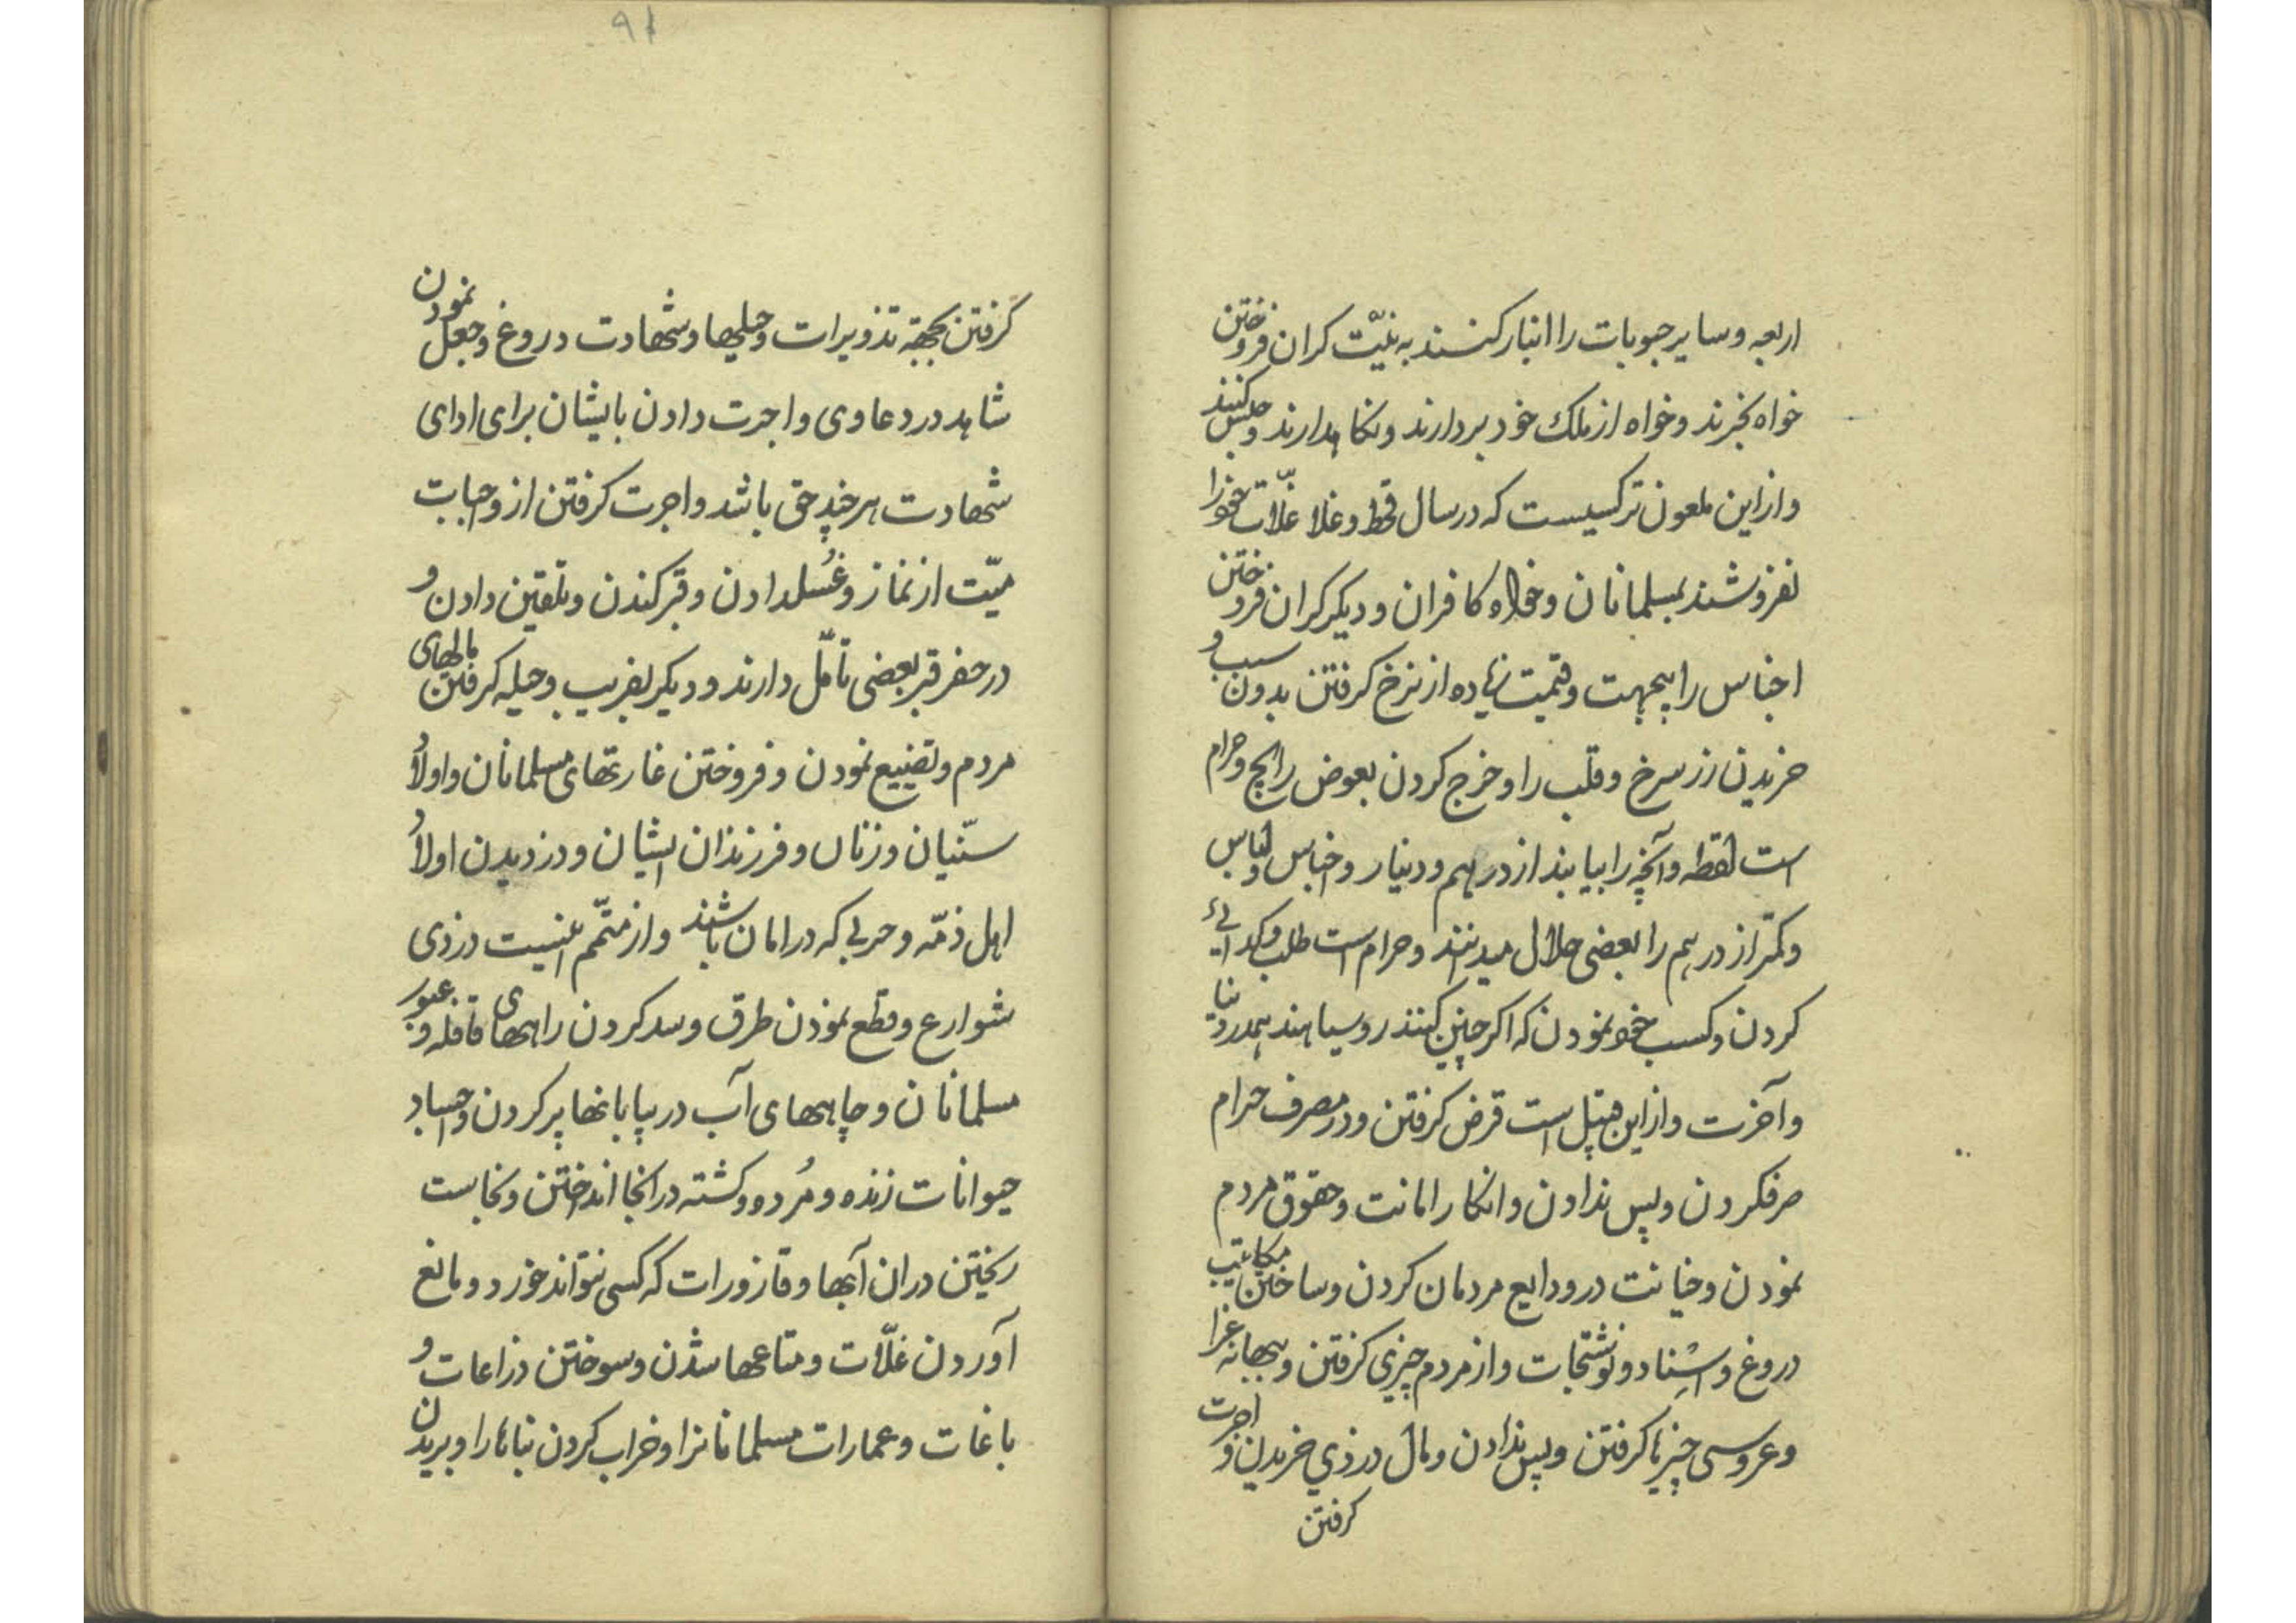 اربعه و سایر حبوبات را انبار کنند به نیّت کران فروختن
خواه بخرند و خواه از ملک خود بردارند و نکاهدارند و حبس کنند
و از این ملعون تر کسیست که در سال قحط و غلا غلّات خود را
نفروشند بمسلمانان و خواه کافران و دیکر کران فروختن
اجناس را بیجهت و قیمت زیاده از نرخ کرفتن بدون سبب و
خریدن زر سرخ و قلب را و خرج کردن بعوض رایج و حرام
است لقطه و آنچه را بیابند از درهم و دینار و اجناس و لباس
و کمتر از درهم را بعضی حلال میدانند و حرام است طلب و کدائی
کردن و کسب خود نمودن که اکر چنین کنند روسیاهند هم در دنیا
و آخرت و از این قبیل است قرض کرفتن و در مصرف حرام
صرفکردن و پس ندادن و انکار امانت و حقوق مردم
نمودن و خیانت در ودایع مردمان کردن و ساختن مکاتیب
دروغ و اسناد و نوشتجات و از مردم چیزی کرفتن و ببهانه عزا
و عروسی چیزها کرفتن و پس ندادن و مال دزدی خریدن و اجرت
کرفتن
۹۱
کرفتن بجهة تذویرات و حیلهها و شهادت دروغ و جعل نمودن
شاهد در دعاوی و اجرت دادن بایشان برای ادای
شهادت هر چند حق باشد و اجرت کرفتن از واجبات
میّت از نماز و غُسلدادن و قبر کندن و تلقین دادن و
در حفر قبر بعضی تأمّل دارند و دیکر بفریب و حیله کرفتن مالهای
مردم و تضییع نمودن و فروختن غارتهای مسلمانان و اولاد
سنّیان و زنان و فرزندان ایشان و دزدیدن اولاد
اهل ذمّه و حربی که در امان باشند و از متمّم اینست دزدی
شوارع و قطع نمودن طرق و سد کردن راههای قافله و عبور
مسلمانان و چاههای آب در بیابانها پر کردن و اجساد
حیوانات زنده و مُرده و کشته در انجا انداختن و نجاست
ریختن در ان آبها و قازورات که کسی نتواند خورد و مانع
آوردن غلّات و متاعها شدن و سوختن زراعات و
باغات و عمارات مسلمانانرا و خراب کردن بناها را و بریدن